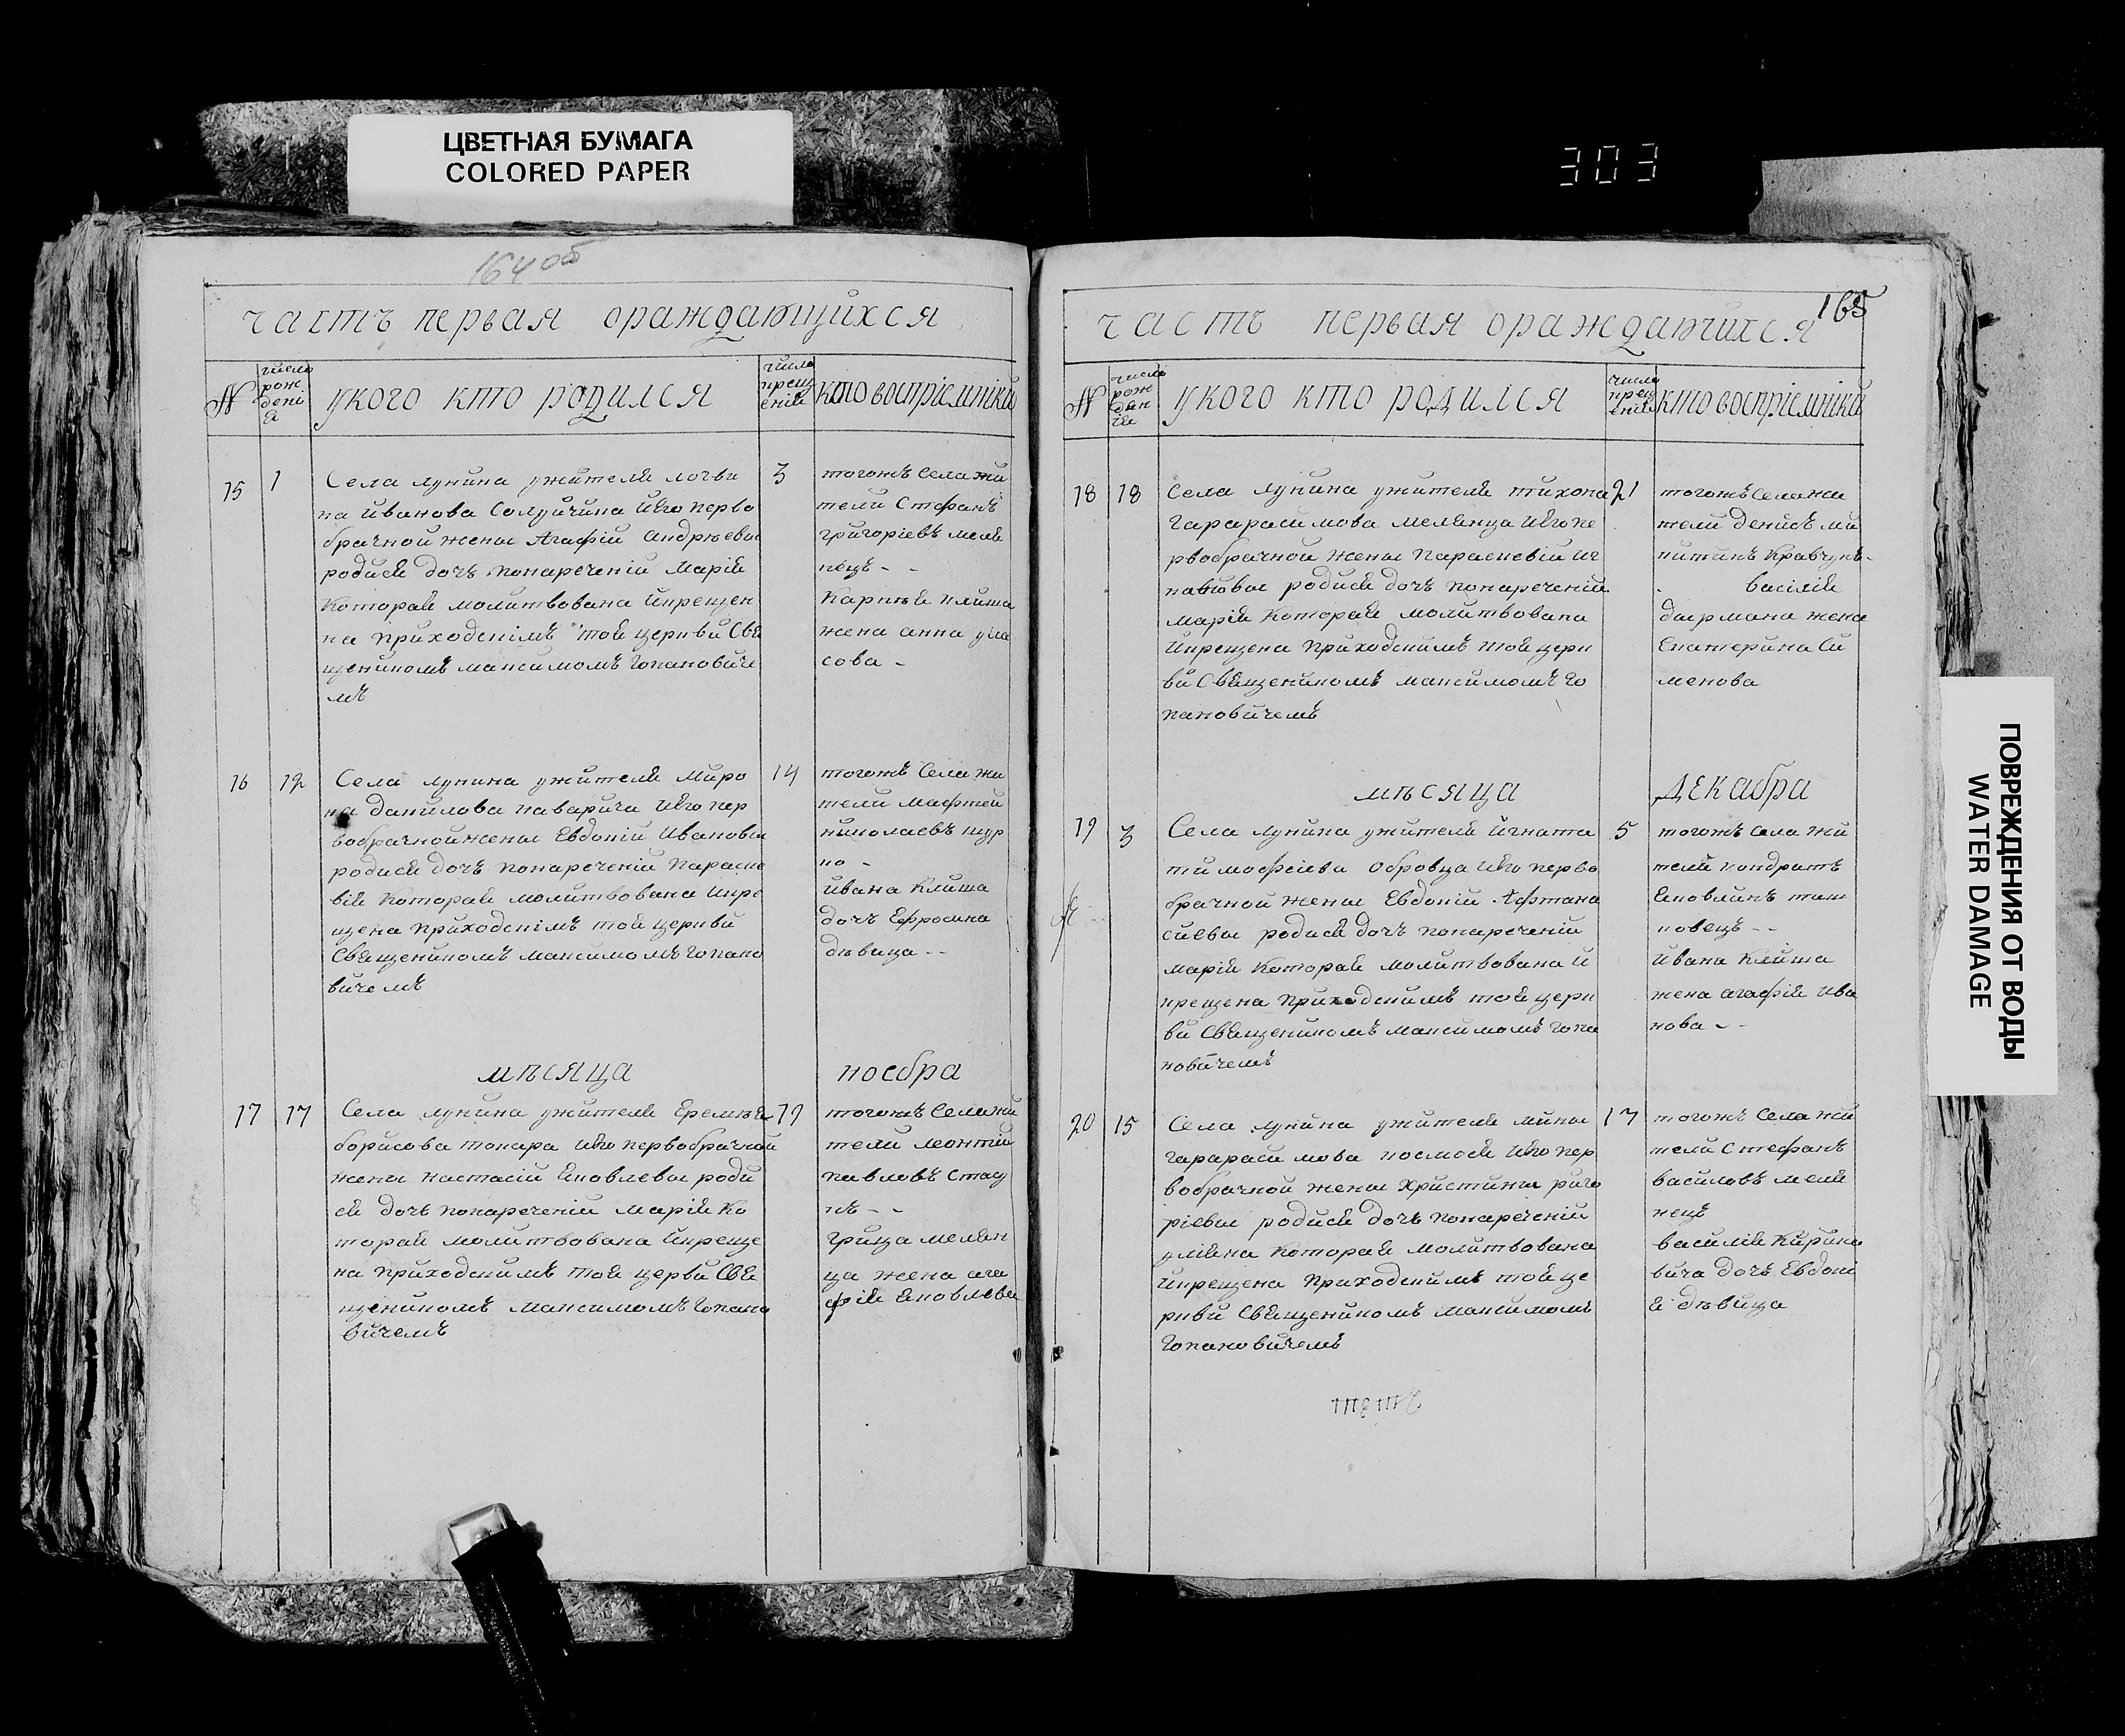 ЦВЕТНАЯ БУМАГА
COLORED PAPER
303
164 об
часть первая ораждающихся
№
число рождения
укого кто родился
число крещения
кто воспріємніки
15
1
Села лунина ужителя логви
на иванова Солуйчина иего перво
брачной жены Агафій андрѣевы
родися дочъ понареченій Марія
Которая молитвована икрещен
на приходскімъ той церкви Свя
щеникомъ максимомъ гопановиче
мъ
3
тогожъ Села жи
тели Стефанъ
григоріевъ меля
нецъ - -
Карпея клиша
жена анна ула
сова -
16
12
Села лунина ужителя Миро
на данилова каварича иего пер
вобрачной жены Евдокій Ивановы
родися дочъ понареченій параске
вія Которая молитвована икре
щена приходскімъ той церкви
Священикомъ максимомъ гопано
вичемъ
14
тогожъ Села жи
тели мафтей
николаевъ щур
ко -
ивана Клиша
дочъ Ефросина
дѣвица - -
мѣсяца
ноебра
17
17
Села лунина ужителя Еремѣя
борисова токара иего первобрачной
жены настасій Яковлевы роди
ся дочъ понареченій марія Ко
торая молитвована икреще
на приходскимъ той церви Свя
щеникомъ максимомъ гопано
вичемъ
19
тогожъ Села жи
тели леонтій
павловъ стасу
къ - -
грица мелян
ца жена ага
фія Яковлева
165
часть первая ораждаючихся
№
число рожденія
укого кто родился
число крещеній
кто воспріємніки
18
18
Села лунина ужителя тихона
гарарасимова мелянца иего пе
рвобрачной жены параскевій иг
натовы родися дочъ понареченій
марія Которая молитвована
икрещена приходскимъ той церк
ви Священикомъ максимомъ го
пановичемъ
21
тогожъ Села жи
тели денисъ ми
китинъ Кравчукъ -
василія
даирмана жена
Екатерина Си
менова
мѣсяца
декабра
19
3
Села лунина ужителя игната
тимофеіева обровца иего перво
брачной жены Евдокій Афтана
сиевы родися дочъ понареченій
марія Которая молитвована и
крещена приходскимъ той церк
ви Священикомъ максимомъ гопа
новичемъ
5
тогожъ села жи
тели кондратъ
Яковлинъ таш
ковецъ - -
ивана Клиша
жена агафія ива
нова - -
20
15
Села лунина ужителя мины
гарарасимова космося иего пер
вобрачной жены христины риго
ріевы родися дочъ понареченій
улияна Которая молитвована
икрещена приходскимъ той це
ркви Священикомъ максимомъ
гопановичемъ
17
тогожъ Села жи
тели Стефанъ
василовъ меля
нецъ
василія Кирико
вича дочъ Евдокі
я дѣвица
ПОВРЕЖДЕНИЯ ОТ ВОДЫ
WATER DAMAGE